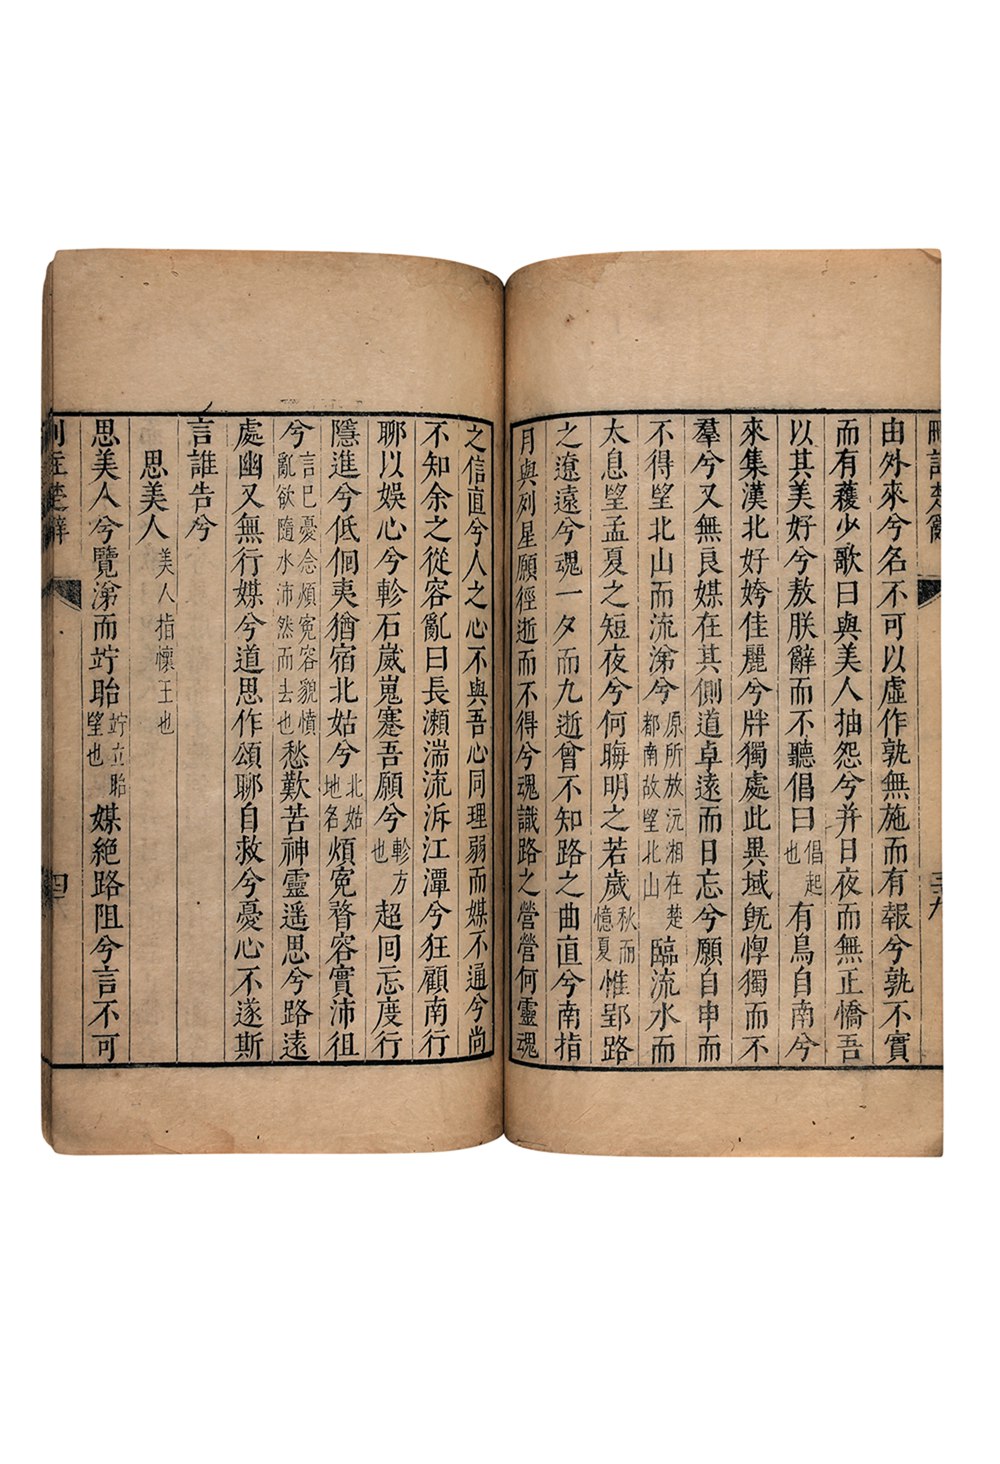 刪註楚辭
三九
由外來兮名不可以虛作孰無施而有報兮孰不實
而有穫少歌曰與美人抽怨兮并日夜而無正憍吾
以其美好兮敖朕辭而不聽倡曰倡起也有鳥自南兮
來集漢北好姱佳麗兮牉獨處此異域旣惸獨而不
羣兮又無良媒在其側道卓遠而日忘兮願自申而
不得望北山而流涕兮原所放沅湘在楚都南故望北山臨流水而
太息望孟夏之短夜兮何晦明之若歲秋而憶夏惟郢路
之遼遠兮魂一夕而九逝曾不知路之曲直兮南指
月與列星願徑逝而不得兮魂識路之營營何靈魂
之信直兮人之心不與吾心同理弱而媒不通兮尚
不知余之從容亂曰長瀨湍流泝江潭兮狂顧南行
聊以娛心兮軫石崴嵬蹇吾願兮軫方也超回忘度行
隱進兮低佪夷猶宿北姑兮北姑地名煩寃瞀容實沛徂
兮言己憂念煩寃容貌憤亂欲隨水沛然而去也愁歎苦神靈遥思兮路遠
處幽又無行媒兮道思作頌聊自救兮憂心不遂斯
言誰告兮
思美人美人指懷王也
思美人兮覽涕而竚眙竚立眙望也媒絶路阻兮言不可
刪註楚辭
四